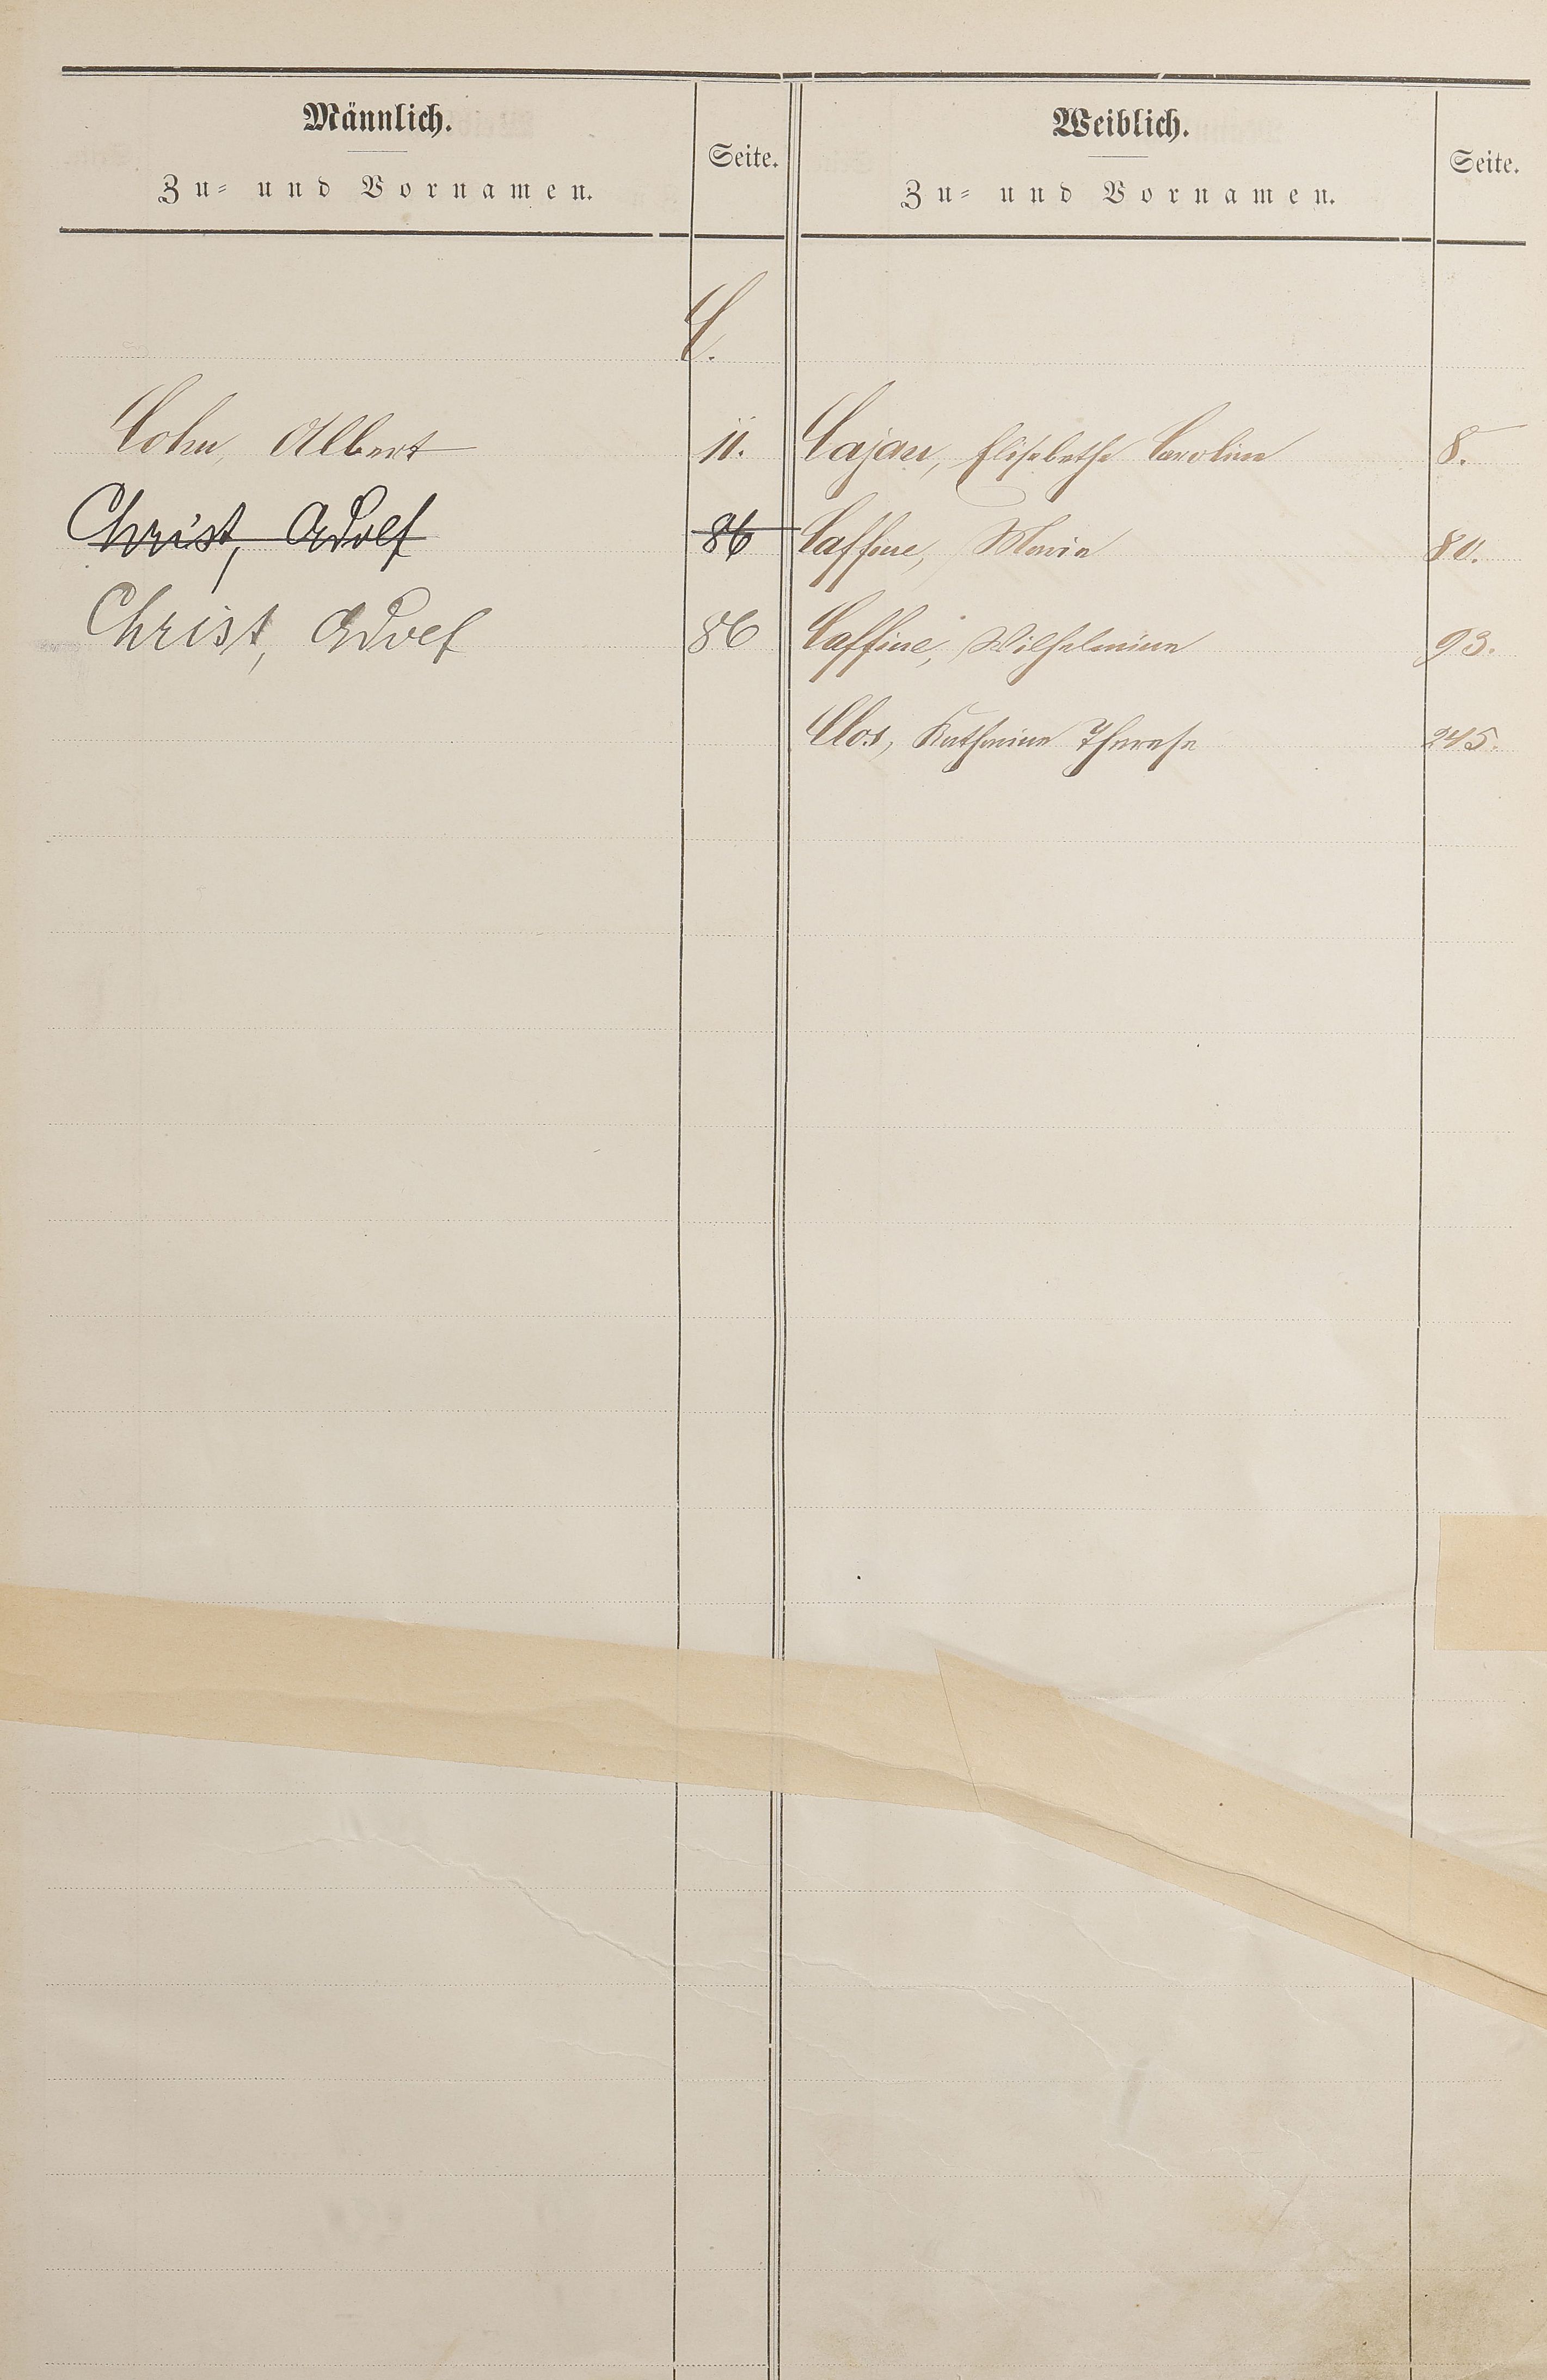 Männlich.
Zu- und Vornamen.
Seite.
Weiblich.
Zu- und Vornamen.
Seite.
C.
Cohn, Albert 11. Cajau, Elisabetha Caroline 8.
Christ, Adolf 86 Caffine, Maria 80.
Christ, Adolf 86 Caffine, Wilhelmine 93.
Clos, Katharina Therese 245.